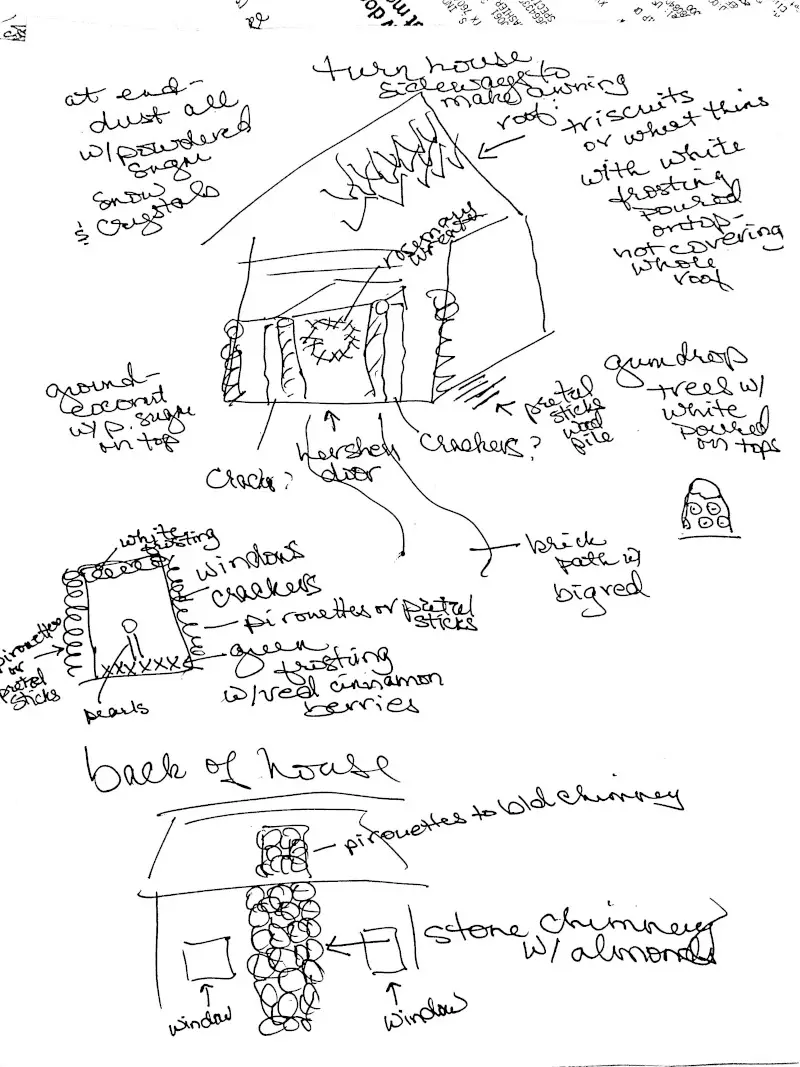 at end -
dust all
w/powdered
sugar
snow
& crystals
turn house
sideways to
make awning
roof:
triscuits
or wheat thins
with white
frosting
poured
ontop -
not covering
whole
roof
rosemary
wreath
ground -
coconut
w/p. sugar
on top
crack?
hershey
door
crackers?
pretzel
sticks
wood
pile
gumdrop
trees w/
white
poured
on tops
brick
path w/
bigred
white
frosting
windows
crackers
pirouettes or pretzel
sticks
pirouettes
or
pretzel
sticks
green
frosting
w/red cinnamon
berries
pearls
back of house
pirouettes to bld chimney
stone chimney
w/ almonds
window
window